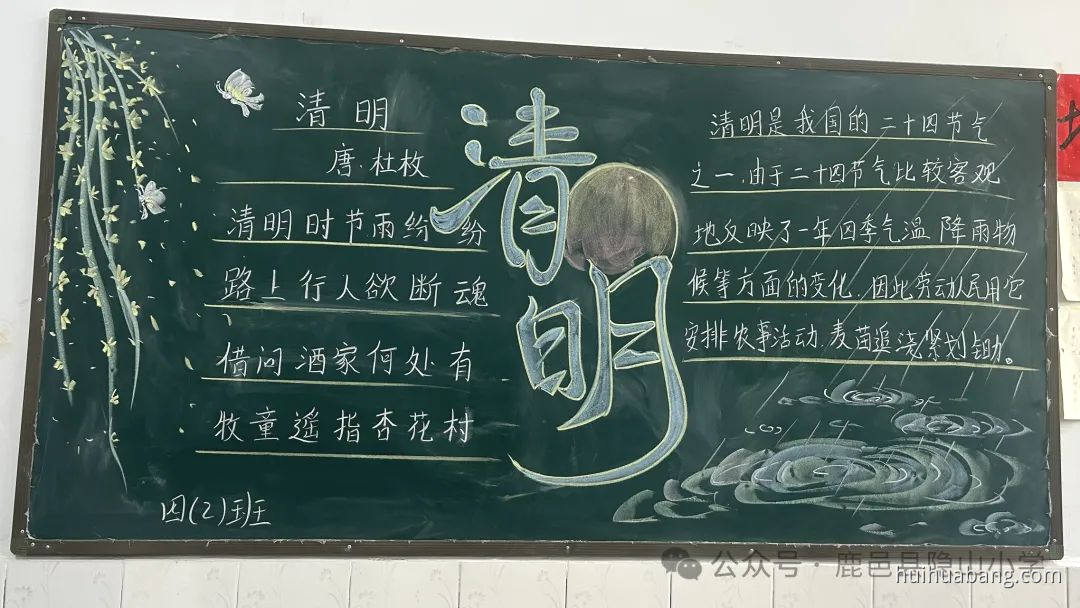 清明
唐.杜枚
清明时节雨纷纷
路上行人欲断魂
借问酒家何处有
牧童遥指杏花村
四(2)班
清明
清明是我国的二十四节气
之一.由于二十四节气比较客观
地反映了一年四季气温降雨物
候等方面的变化.因此劳动人民用它
安排农事活动.麦苗追浇紧划锄。
公众号·鹿邑县隐山小学
huihuabang.com